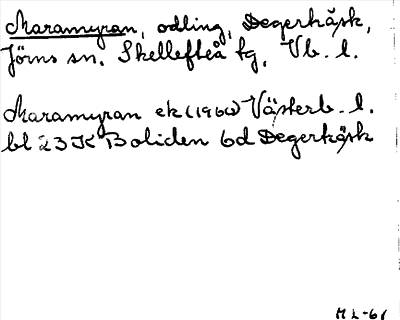 Maramyran, odling, Degerträsk,
Jörns sn. Skellefteå tg, Vb. l.
Maramyran ek (1960) Västerb. l.
bl 23 K Boliden 6d Degerträsk